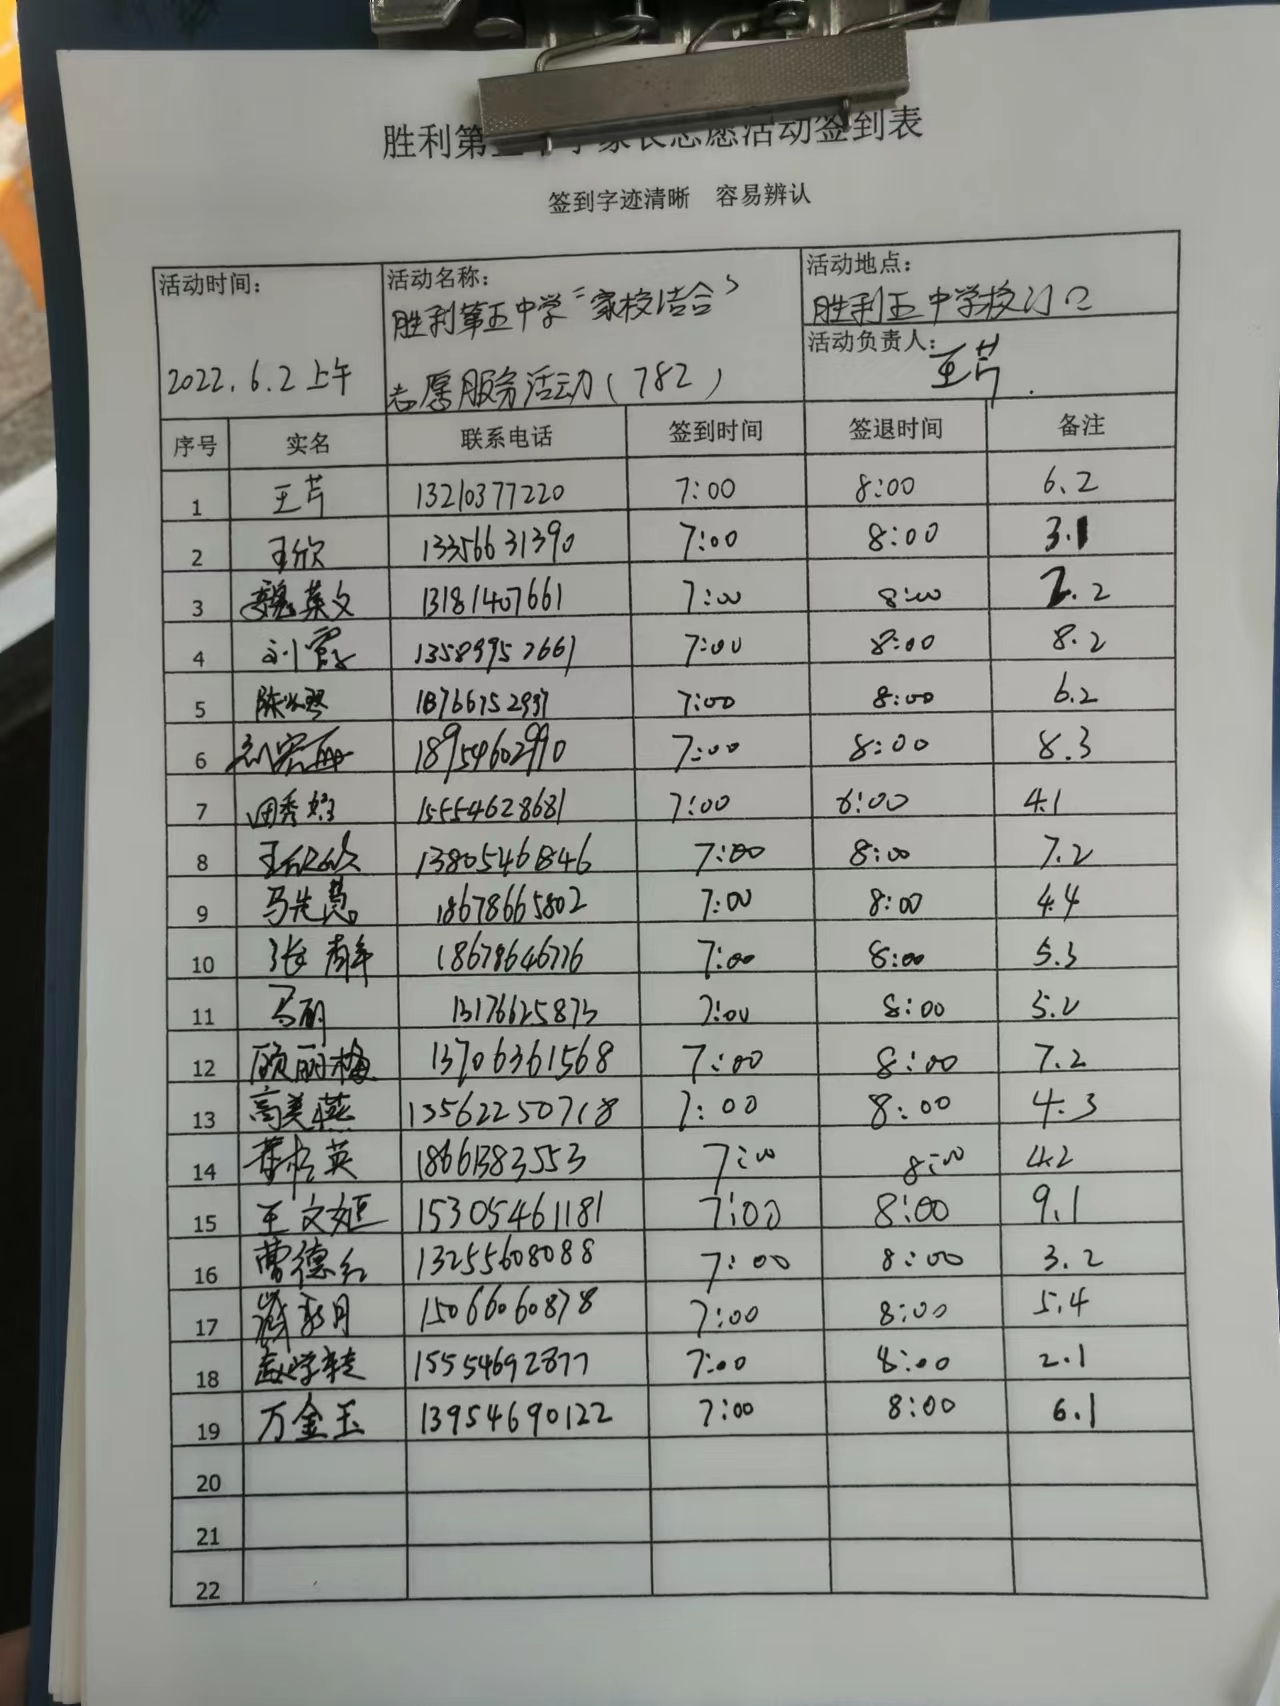 胜利第五中学家长志愿活动签到表
签到字迹清晰 容易辨认
活动时间: 2022.6.2上午
活动名称: 胜利第五中学“家校结合”
志愿服务活动(782)
活动地点: 胜利五中学校门口
活动负责人: 王芹
序号 实名 联系电话 签到时间 签退时间 备注
1 王芹 13210377220 7:00 8:00 6.2
2 王欣 13356631390 7:00 8:00 3.1
3 魏英文 13181407661 7:00 8:00 2.2
4 刘霞 13589957661 7:00 8:00 8.2
5 陈 18766752937 7:00 8:00 6.2
6 18954602990 7:00 8:00 8.3
7 田秀娟 15554628681 7:00 8:00 4.1
8 王欣欣 13805461846 7:00 8:00 7.2
9 马先慧 18678665802 7:00 8:00 4.4
10 张静 18678646776 7:00 8:00 5.3
11 马丽 13176625873 7:00 8:00 5.2
12 顾丽梅 13706361568 7:00 8:00 7.2
13 高美燕 13562250718 7:00 8:00 4.3
14 英 18661383553 7:00 8:00 4.2
15 王文姬 15305461181 7:00 8:00 9.1
16 曹德红 13255608088 7:00 8:00 3.2
17 臧新月 15066060878 7:00 8:00 5.4
18 15554692877 7:00 8:00 2.1
19 万金玉 13954690122 7:00 8:00 6.1
20
21
22